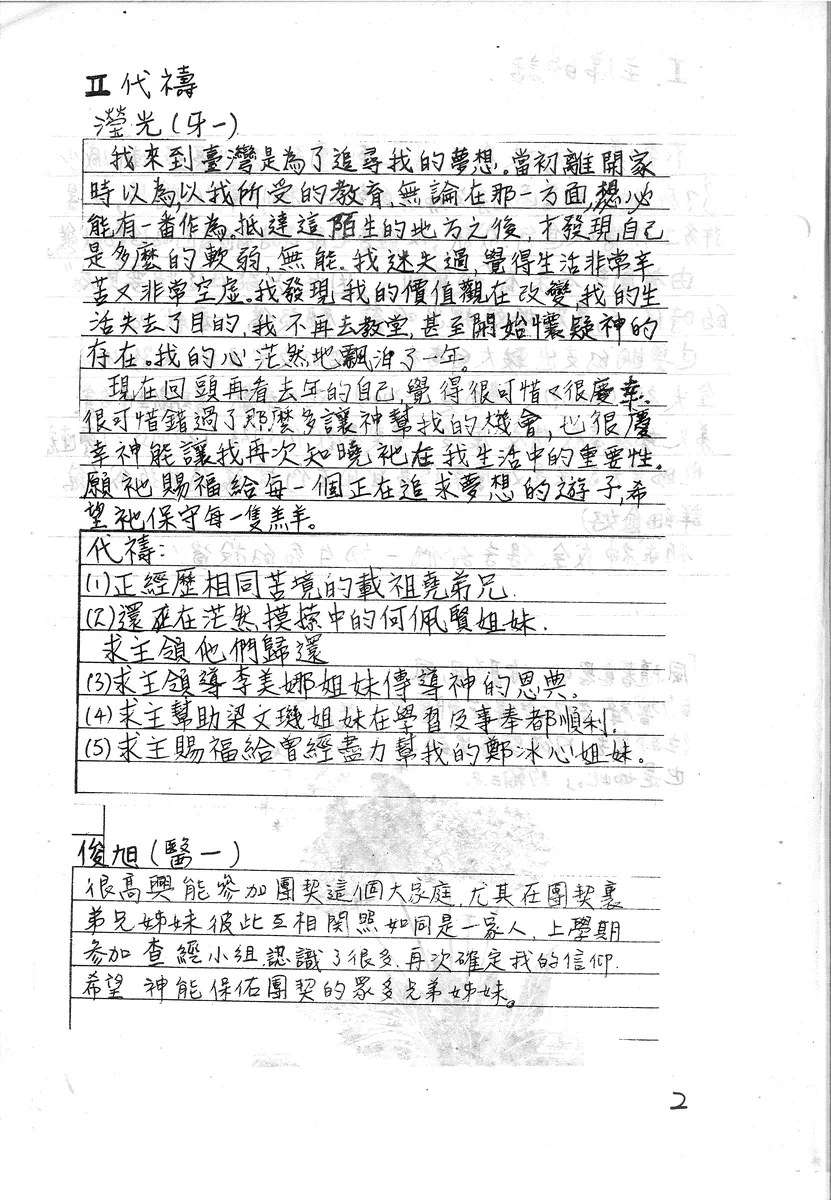 Ⅱ 代禱
瀅光(牙一)
我來到臺灣是為了追尋我的夢想。當初離開家
時以為,以我所受的教育,無論在那一方面,想必
能有一番作為。抵達這陌生的地方之後,才發現自己
是多麼的軟弱,無能.我迷失過,覺得生活非常辛
苦又非常空虛。我發現我的價值觀在改變,我的生
活失去了目的,我不再去教堂,甚至開始懷疑神的
存在。我的心茫然地飄泊了一年。
現在回頭再看去年的自己,覺得很可惜又很慶幸。
很可惜錯過了那麼多讓神幫我的機會,也很慶
幸神能讓我再次知曉祂在我生活中的重要性。
願祂賜福給每一個正在追求夢想的遊子,希
望祂保守每一隻羔羊。
代禱:
(1)正經歷相同苦境的載祖堯弟兄.
(2)還在茫然摸索中的何佩賢姐妹.
求主領他們歸還
(3)求主領導李美娜姐妹傳導神的恩典。
(4)求主幫助梁文璣姐妹在學習及事奉都順利.
(5)求主賜福給曾經盡力幫我的鄭冰心姐妹。
俊旭(醫一)
很高興能參加團契這個大家庭.尤其在團契裏
弟兄姊妹彼此互相関照如同是一家人.上學期
參加查經小組.認識了很多.再次確定我的信仰.
希望 神能保佑團契的眾多兄弟姊妹。
2